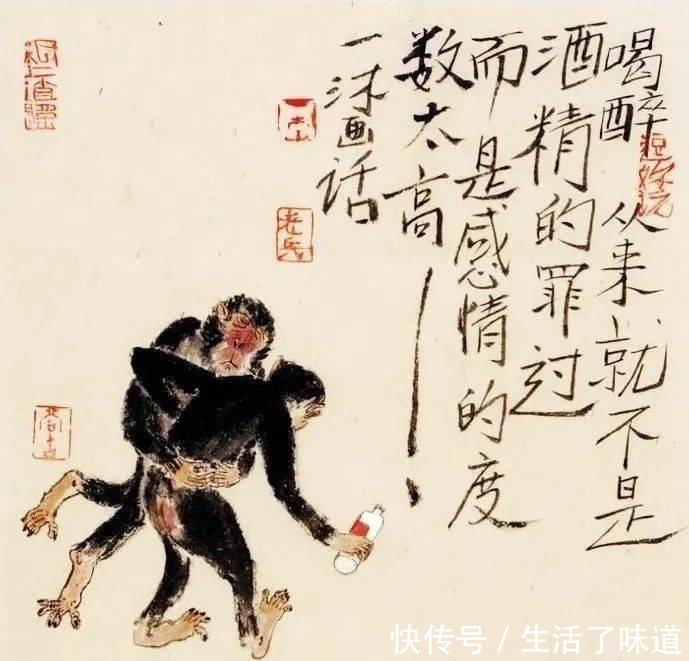 喝醉 从来就不是
酒精的罪过
而是感情的度
数太高——！
一沐画话
快传号／生活了味道